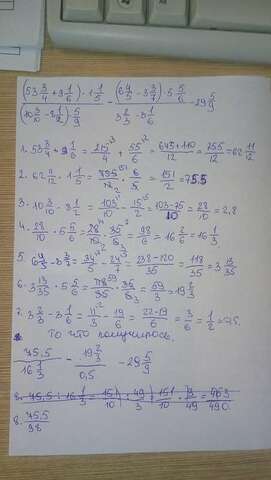 (53 3/4 + 9 1/6) · 1 1/5 / (10 3/10 - 8 1/2) · 5/9 - (6 4/5 - 3 3/7) · 5 5/6 / 3 2/3 - 3 1/6 - 29 5/9
1. 53 3/4 + 9 1/6 = 215/4 + 55/6 = 645+110/12 = 755/12 = 62 11/12
2. 62 11/12 · 1 1/5 = 755/12 · 6/5 = 151/2 = 75.5
= 103/10 - 15/2 = 103-75/10 = 28/10 = 2,8
4. 28/10 · 5 5/6 = 28/10 · 35/6 = 98/6 = 16 2/6 = 16 1/3
5. 6 4/5 - 3 3/7 = 34/5 - 24/7 = 238-120/35 = 118/35 = 3 13/35
6. 3 13/35 · 5 5/6 = 118/35 · 35/6 = 59/3 = 19 2/3
7. 3 2/3 - 3 1/6 = 11/3 - 19/6 = 22-19/6 = 3/6 = 1/2
То что получилось.
75,5 / 16 1/3 - 19 2/3 / 0,5 - 29 5/9
8. 75,5 : 16 1/3 = 151/10 : 49/3 = 151/10 · 3/49 = 453/490
8. 75,5